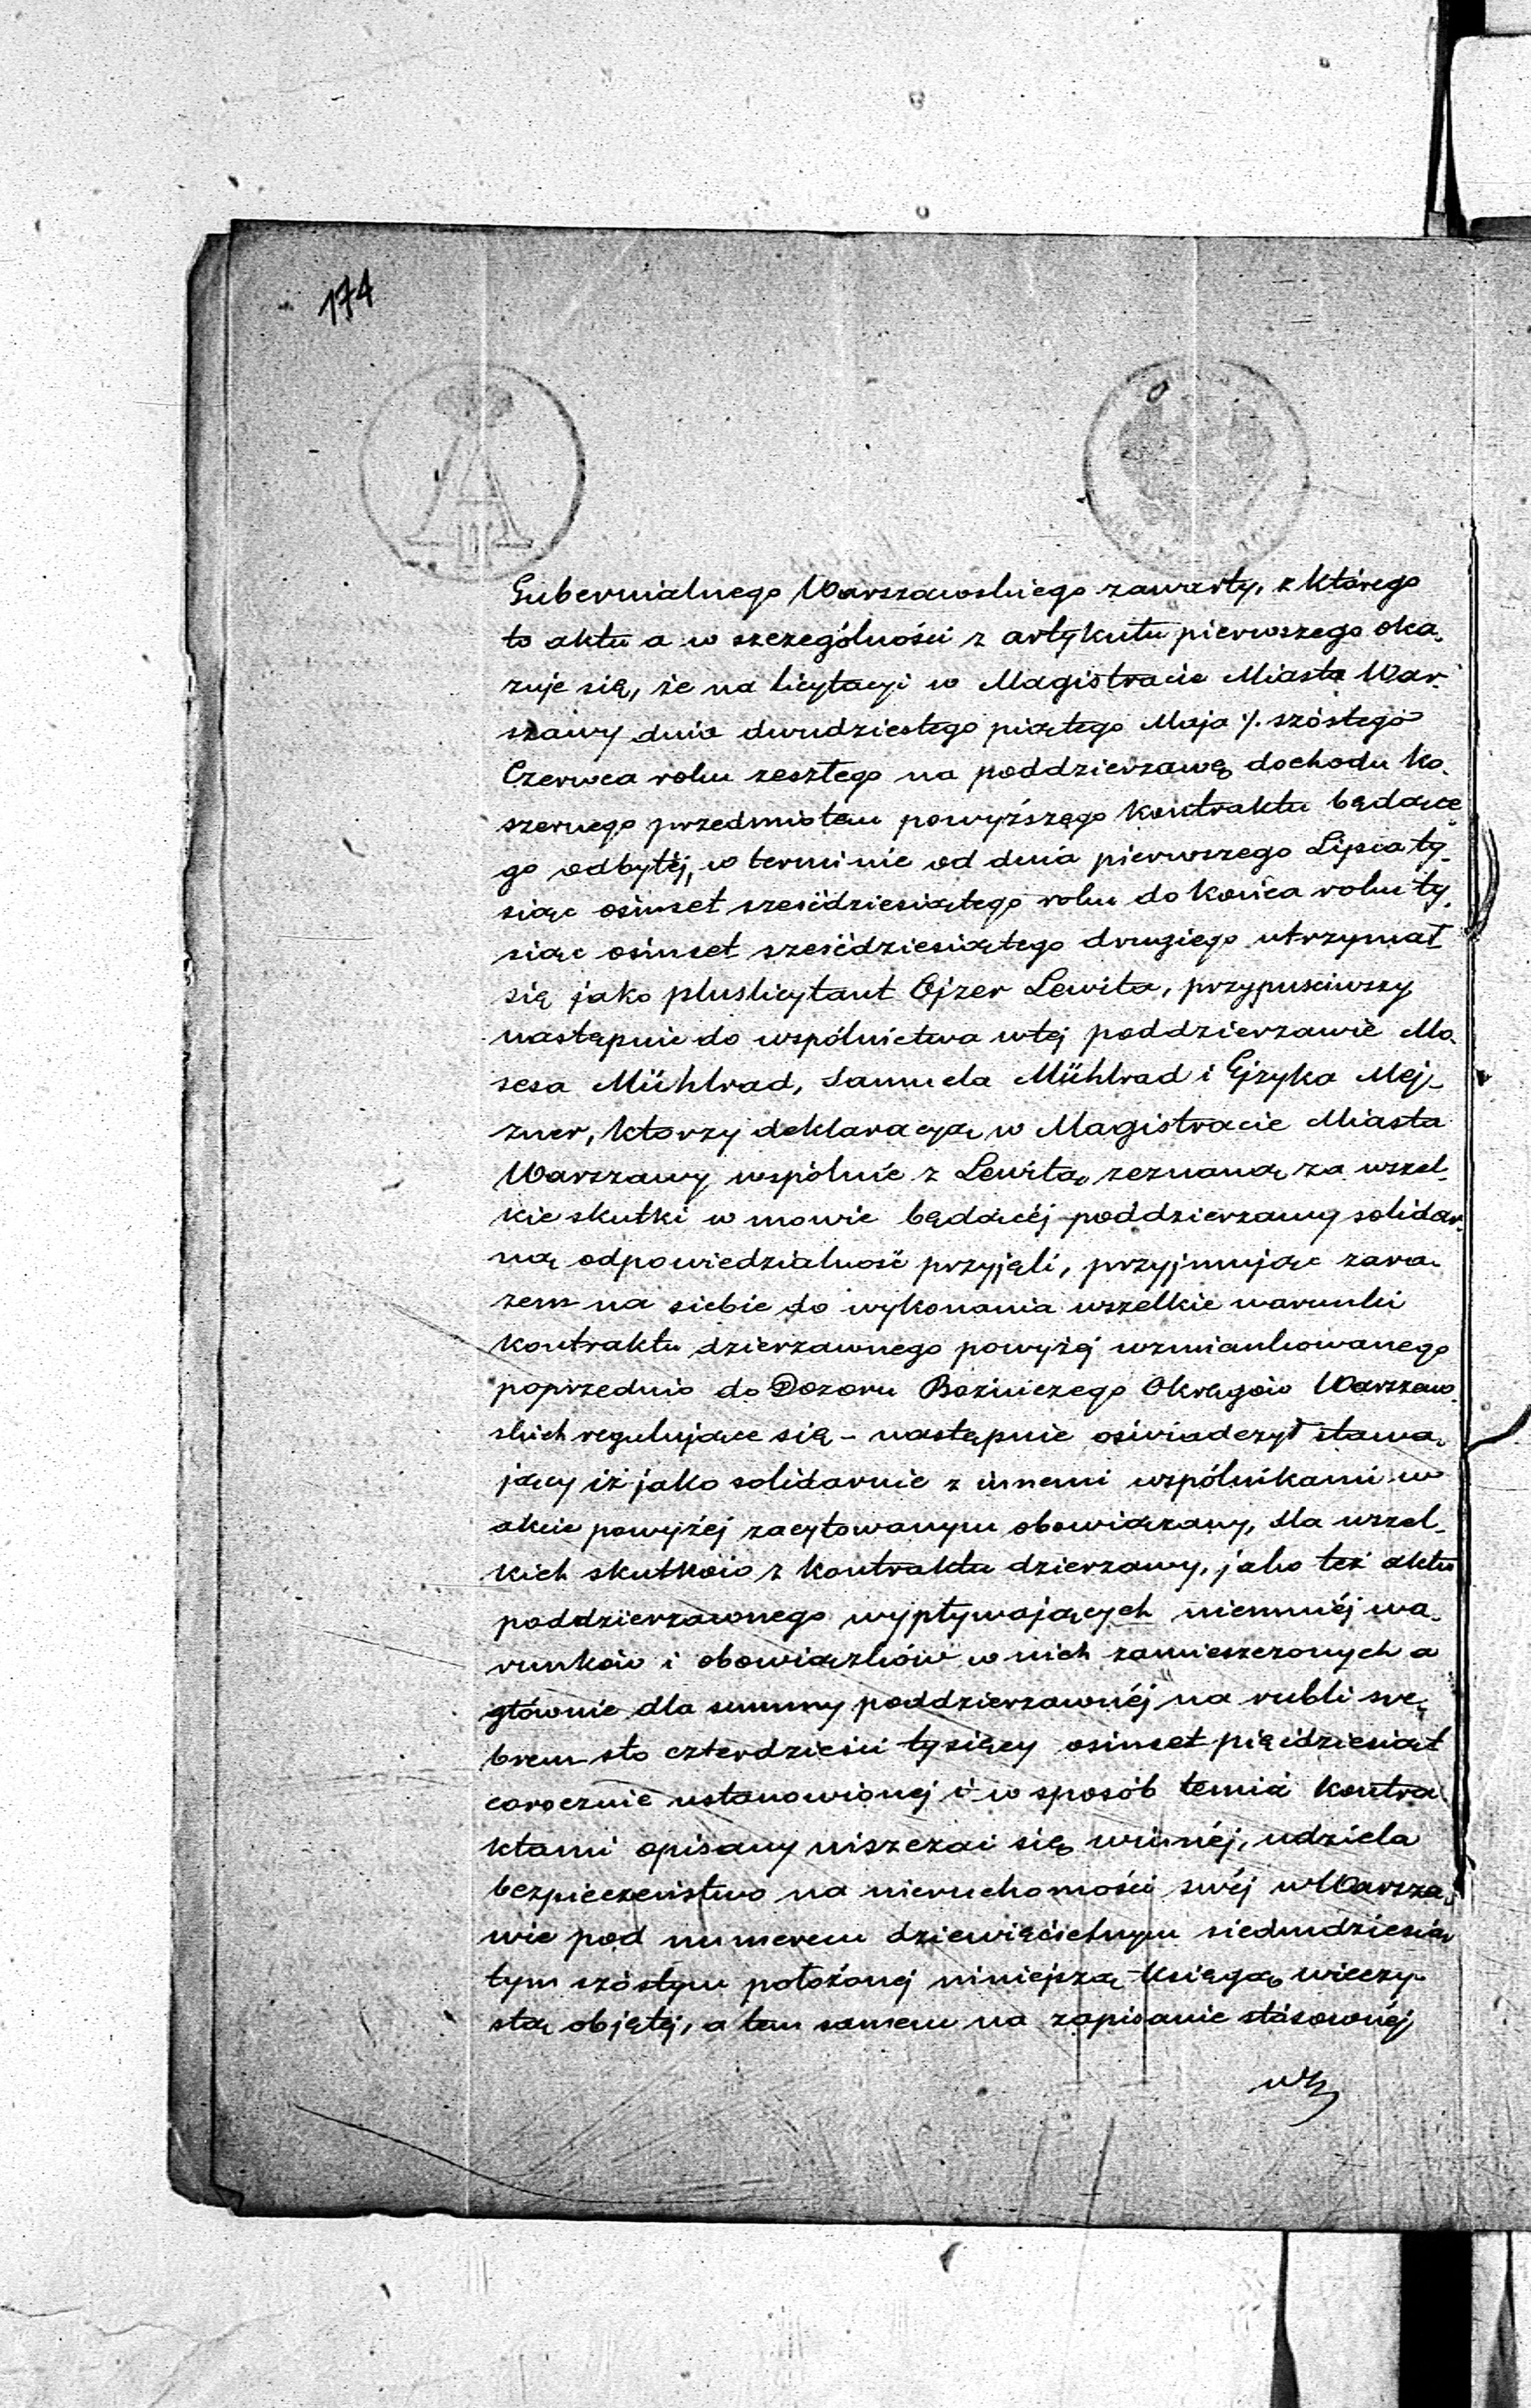 174
Gubernialnego Warszawskiego zawarty, z którego
to aktu a w szczególności z artykułu pierwszego oka,
zuje się, że na licytacyi w Magistracie Miasta War-
szawy dnia dwudziestego piątego Maja /. szóstego
Czerwca roku zeszłego na poddzierzawę dochodu ko,
szernego przedmiotem powyższego kontraktu będące,
go odbytéj, w terminie od dnia pierwszego Lipca ty,
siąc osimset sześćdziesiątego roku do końca roku ty,
siąc osimset sześćdziesiątego drugiego utrzymał
się jako pluslicytant Ojzer Lewita, przypuściwszy
następnie do wspólnictwa w tej poddzierzawie Mo,
sesa Mühlrad, Samuela Mühlrad i Ejzyka Mej-
zner, ktorzy deklaracyą w Magistracie Miasta
Warszawy wspólnie z Lewitą zeznaną za wszel-
kie skutki w mowie będącéj poddzierzawy solidar,
ną odpowiedzialność przyjęli, przyjmując zara,
zem na siebie do wykonania wszelkie warunki
kontraktu dzierzawnego powyżej wzmiankowanego
poprzednio do Dozoru Bożniczego Okręgów Warszaw,
skich regulujące się - następnie oświadczył stawa,
jący iż jako solidarnie z innemi wspólnikami w
akcie powyżej zacytowanym obowiązany, dla wszel-
kich skutków z kontraktu dzierzawy, jako też aktu
poddzierzawnego wypływających niemniéj wa,
runków i obowiązków w nich zamieszczonych a
głównie dla summy poddzierzawnéj na rubli sre,
brem sto czterdzieści tysięcy osimset pięćdziesiąt
corocznie ustanowionej i w sposób temiż kontra,
ktami opisany uiszczać się winnéj, udziela
bezpieczeństwo na nieruchomości swéj w Warsza,
wie pod numerem dziewięćsetnym siedmdziesią,
tym szóstym położonej niniejszą księgą wieczy-
stą objętej, a tem samem na zapisanie stósownéj